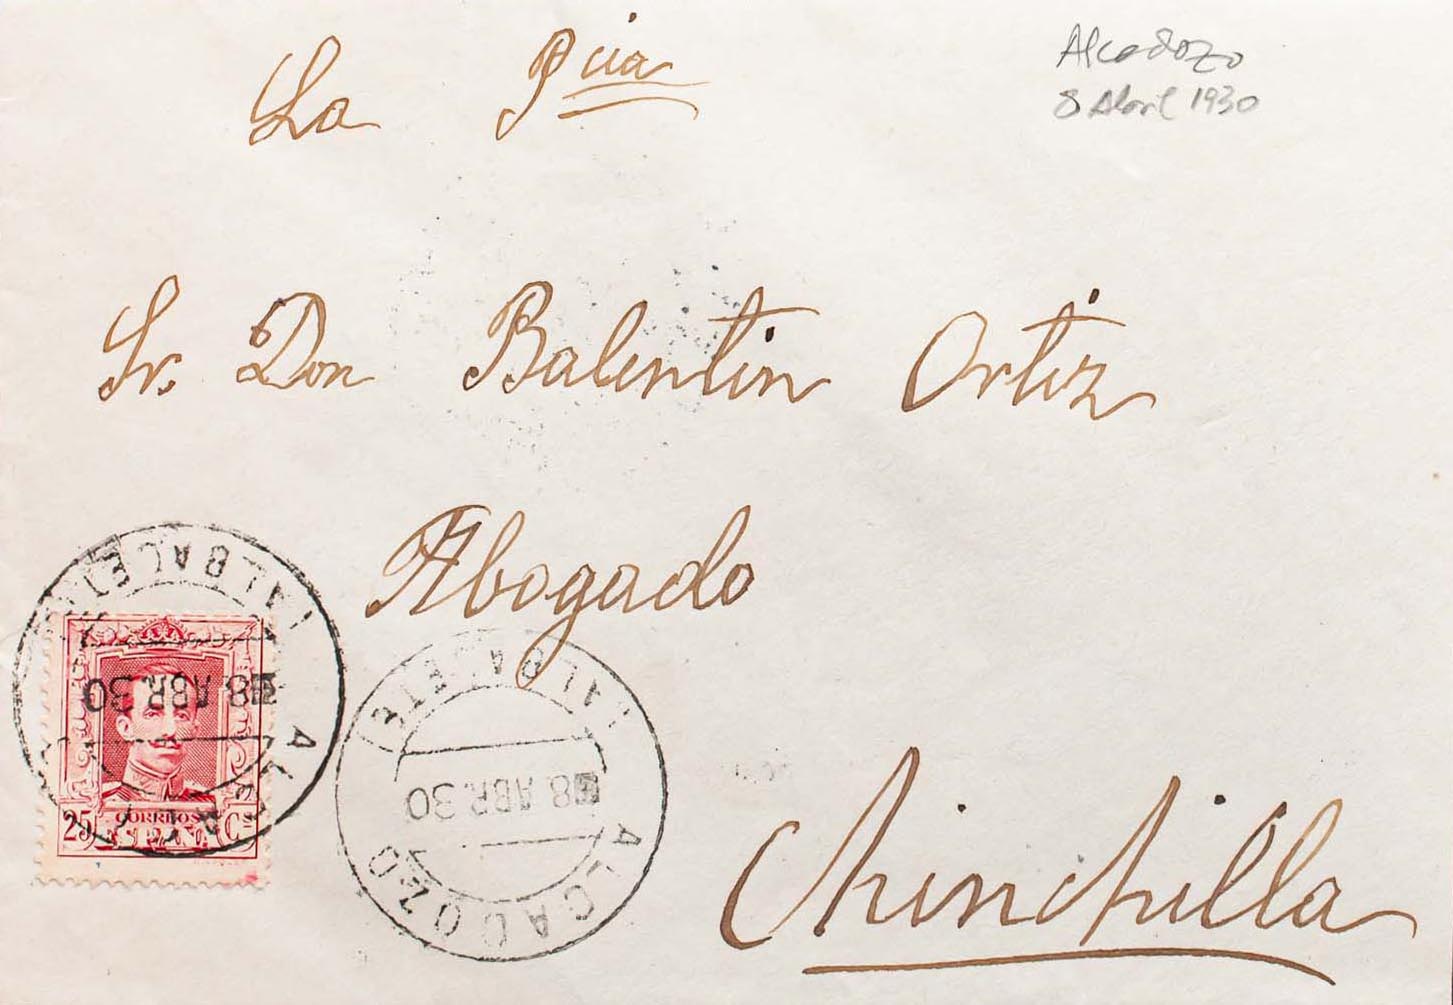 La Pcia
Alcadozo
8 Abril 1930
Sr. Don Balentin Ortiz
Abogado
Chinchilla
ALCADOZO
8 ABR. 30
(ALBACETE)
25 Cs
CORREOS
ESPAÑA
ALCADOZO
8 ABR. 30
(ALBACETE)